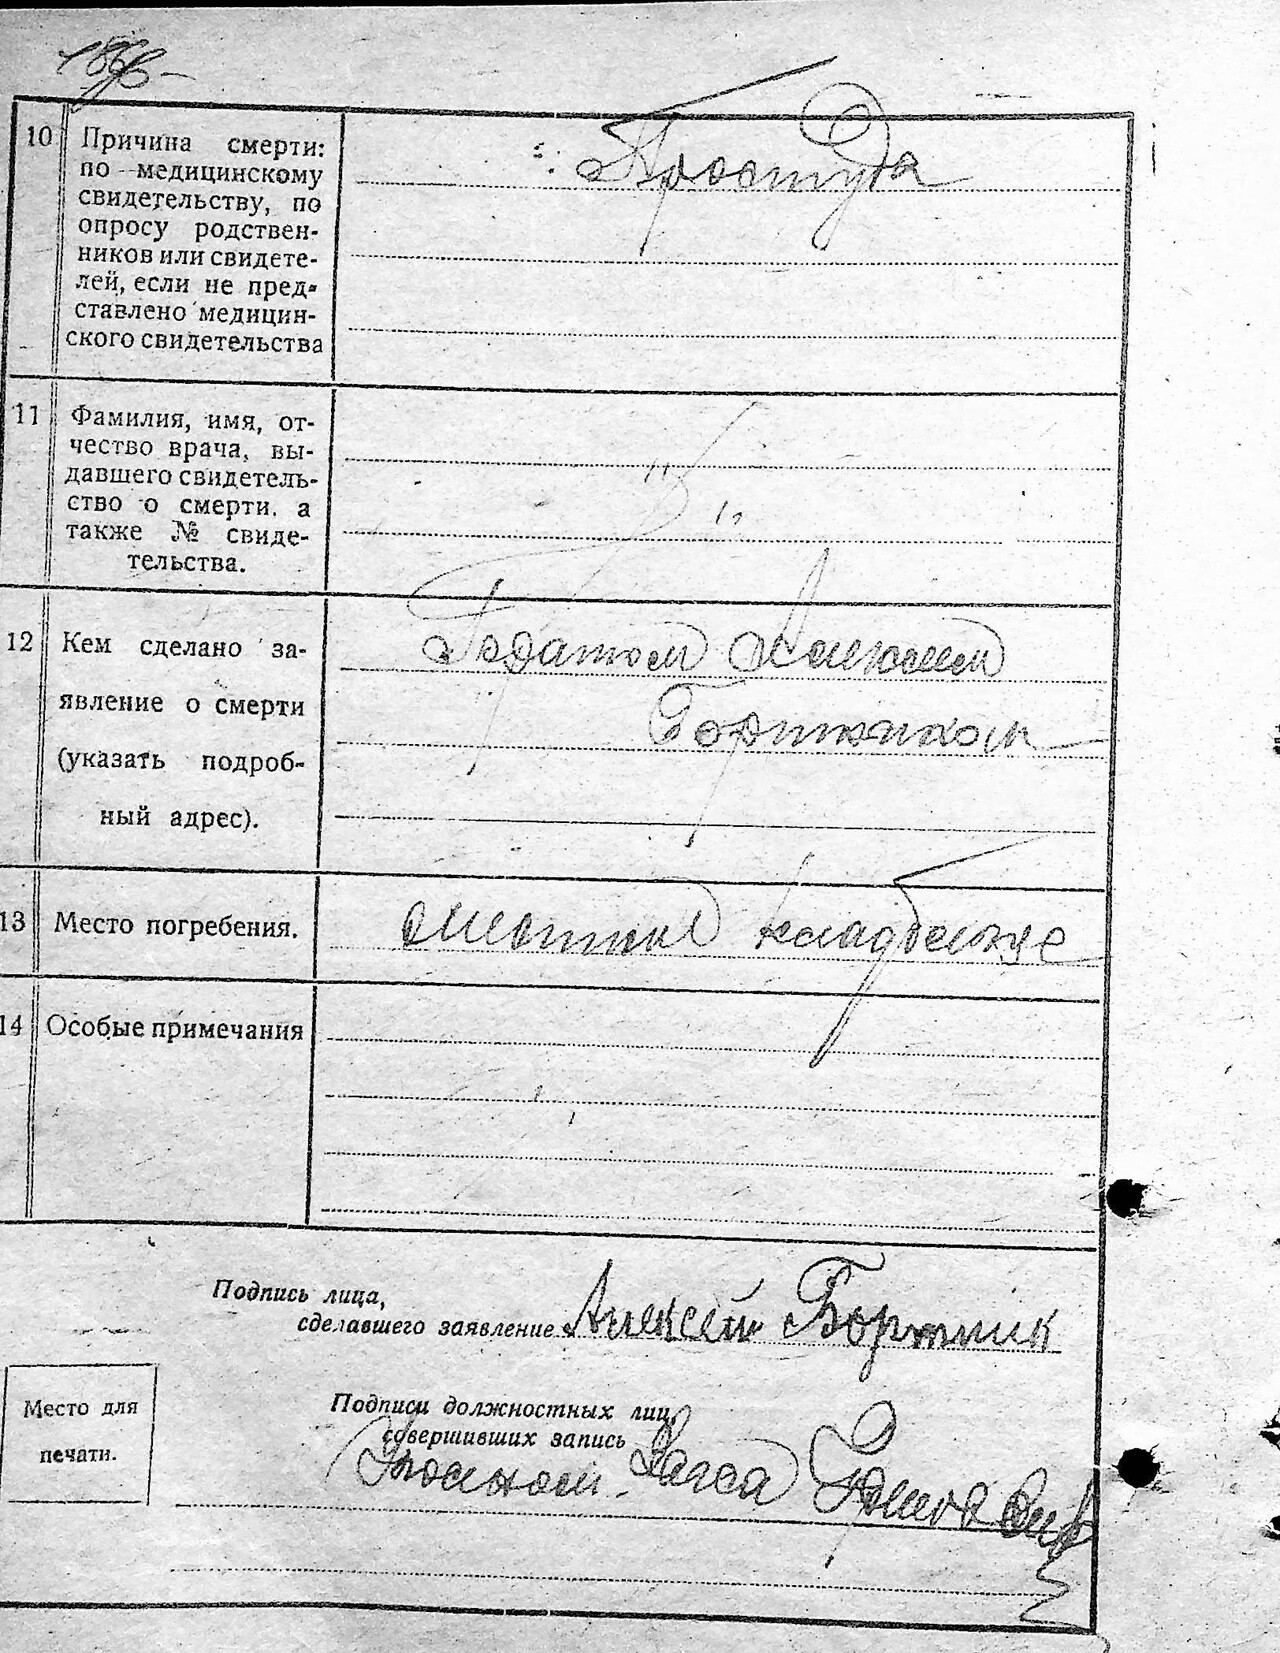 10 Причина смерти: Простуда
по медицинскому
свидетельству, по
опросу родствен-
ников или свидете-
лей, если не пред-
ставлено медицин-
ского свидетельства
11 Фамилия, имя, от-
чество врача, вы-
давшего свидетель-
ство о смерти. а
также № свиде-
тельства.
12 Кем сделано за-
явление о смерти
(указать подроб-
ный адрес).
13 Место погребения. кладбище
14 Особые примечания
Подпись лица,
сделавшего заявление Алексей Бортник
Место для
печати.
Подписи должностных лиц,
совершивших запись
Загса